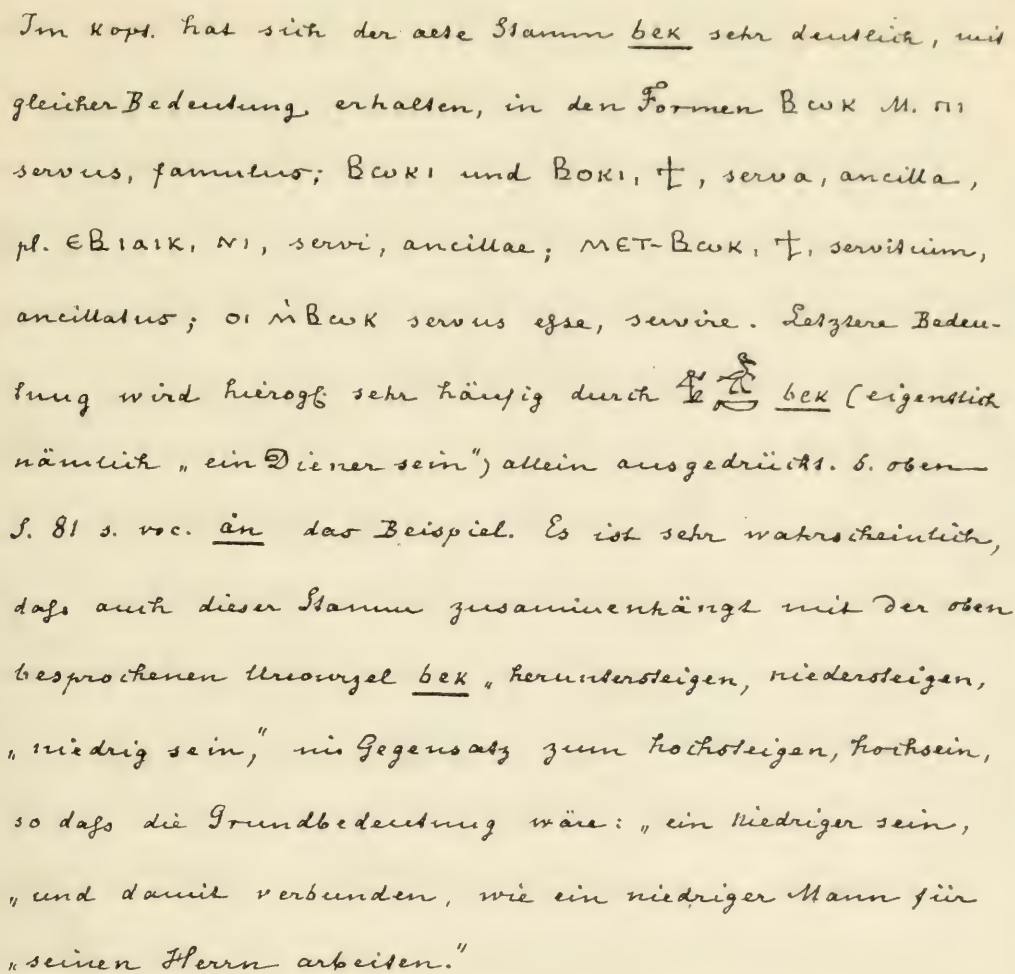 Im kopt. hat sich der alte Stamm bek sehr deutlich, mit
gleicher Bedeutung, erhalten, in den Formen Ⲃⲱⲕ M. ⲡⲓ
servus, famulus; Ⲃⲱⲕⲓ und Ⲃⲟⲕⲓ, ϯ, serva, ancilla,
pl. ⲉⲂⲓⲁⲓⲕ, ⲛⲓ, servi, ancillae; ⲙⲉⲧ-Ⲃⲱⲕ, ϯ, servitium,
ancillatus; ⲟⲓ ⲛ̇Ⲃⲱⲕ servus eſse, servire. Letztere Bedeu-
tung wird hierogl. sehr häufig durch bek (eigentlich
nämlich „ein Diener sein") allein ausgedrückt. S. oben
S. 81 s. voc. ȧn das Beispiel. Es ist sehr wahrscheinlich,
daſs auch dieser Stamm zusammenhängt mit der oben
besprochenen Urwurzel bek „heruntersteigen, niedersteigen,
„niedrig sein," im Gegensatz zum hochsteigen, hochsein,
so daſs die Grundbedeutung wäre: „ein Niedriger sein,
„und damit verbunden, wie ein niedriger Mann für
„seinen Herrn arbeiten."